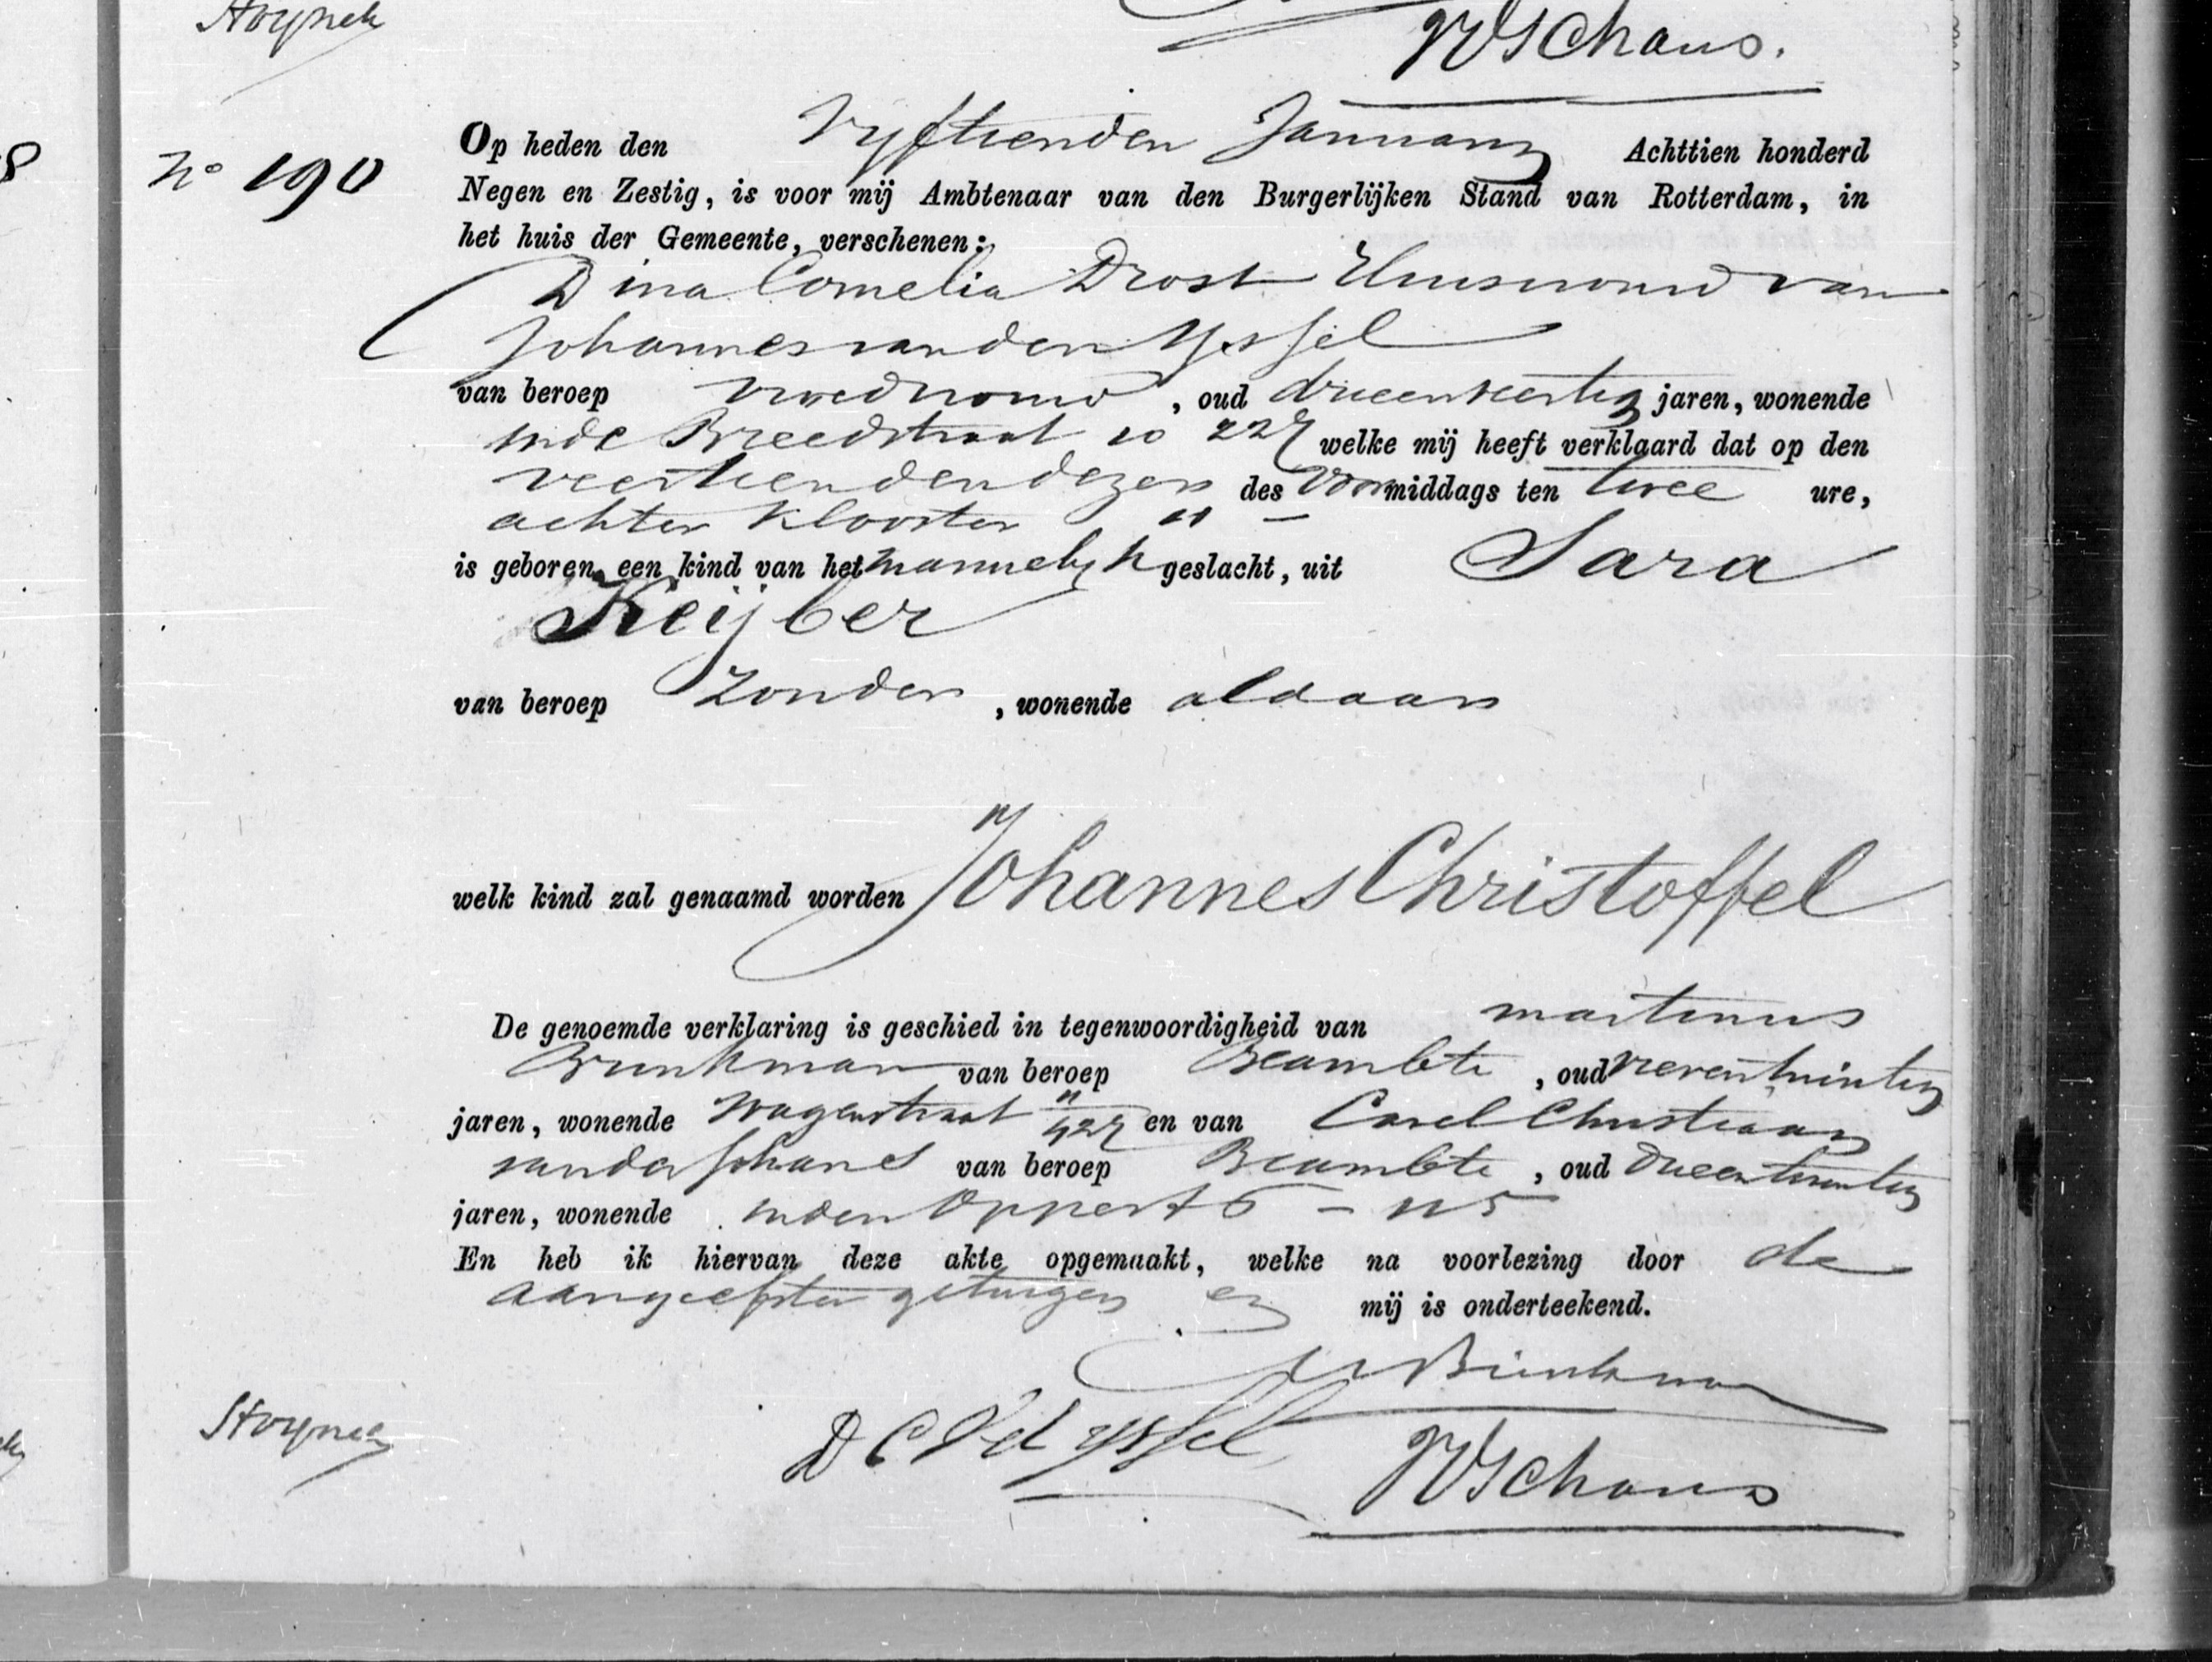 Stoynck
JVSchaus.
No 190
Op heden den Vyftienden January Achttien honderd
Negen en Zestig, is voor mij Ambtenaar van den Burgerlijken Stand van Rotterdam, in
het huis der Gemeente, verschenen:
Dina Cornelia Drost Huisvrouw van
Johannes van den Yssel
van beroep vroedvrouw, oud drieenveertig jaren, wonende
inde Breedstraat 10 227 welke mij heeft verklaard dat op den
veertienden dezer des voormiddags ten twee ure,
achter Klooster 11 –
is geboren, een kind van het mannelyk geslacht, uit Sara
Keijber
van beroep Zonder, wonende aldaar
welk kind zal genaamd worden Johannes Christoffel
De genoemde verklaring is geschied in tegenwoordigheid van martinus
Brinkman van beroep Beambte, oud vierentwintig
jaren, wonende Wagenstraat 11/427 en van Carel Christiaan
van der Schans van beroep Beambte, oud drieentwintig
jaren, wonende inden Oppert 6 – 115
En heb ik hiervan deze akte opgemaakt, welke na voorlezing door de
aangeefster getuigen en mij is onderteekend.
M Brinkman
Stoynck
D C Vd Yssel
JVSchaus